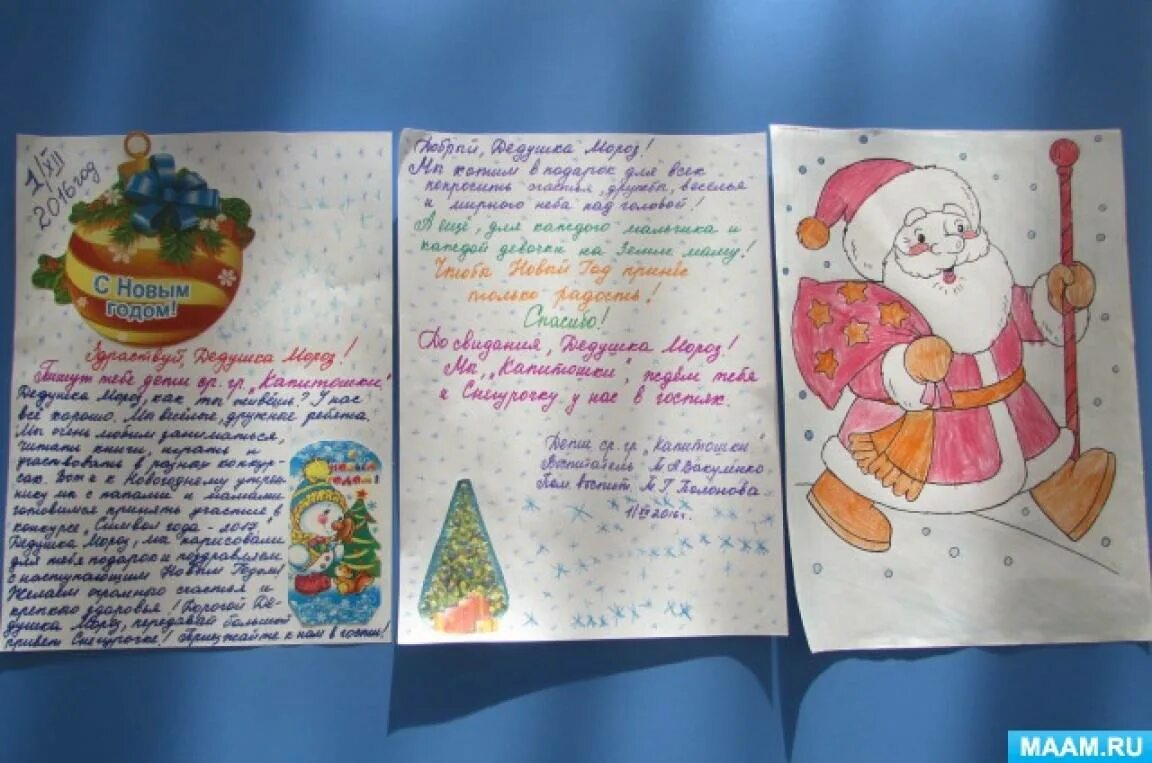 1/XII
2016 год
С Новым
годом!
Здраствуй, Дедушка Мороз!
Пишут тебе дети ср. гр. „Капитошки".
Дедушка Мороз, как ты живёшь? У нас
всё хорошо. Мы весёлые, дружные ребята.
Мы очень любим заниматься,
читать книги, играть и
участвовать в разных конкур-
сах. Вот и к Новогоднему утрен-
нику мы с папами и мамами
готовимся принять участие в
конкурсе „Символ года - 2017".
Дедушка Мороз, мы нарисовали
для тебя подарок и поздравляем
с наступающим Новым Годом!
Желаем огромного счастья и
крепкого здоровья! Дорогой Де-
душка Мороз, передавай большой
привет Снегурочке! Приезжайте к нам в гости!
Добрый, Дедушка Мороз!
Мы хотим в подарок для всех
попросить счастья, дружбы, веселья
и мирного неба над головой!
А ещё, для каждого мальчика и
каждой девочки на Земле маму!
Чтобы Новый Год принёс
только радость!
Спасибо!
До свидания, Дедушка Мороз!
Мы „Капитошки", ждём тебя
и Снегурочку у нас в гостях.
Дети ср. гр. „Капитошки"
Воспитатель М.А Вакуменко
Пом. воспит. М.Г Полонова
1/XII 2016г.
MAAM.RU